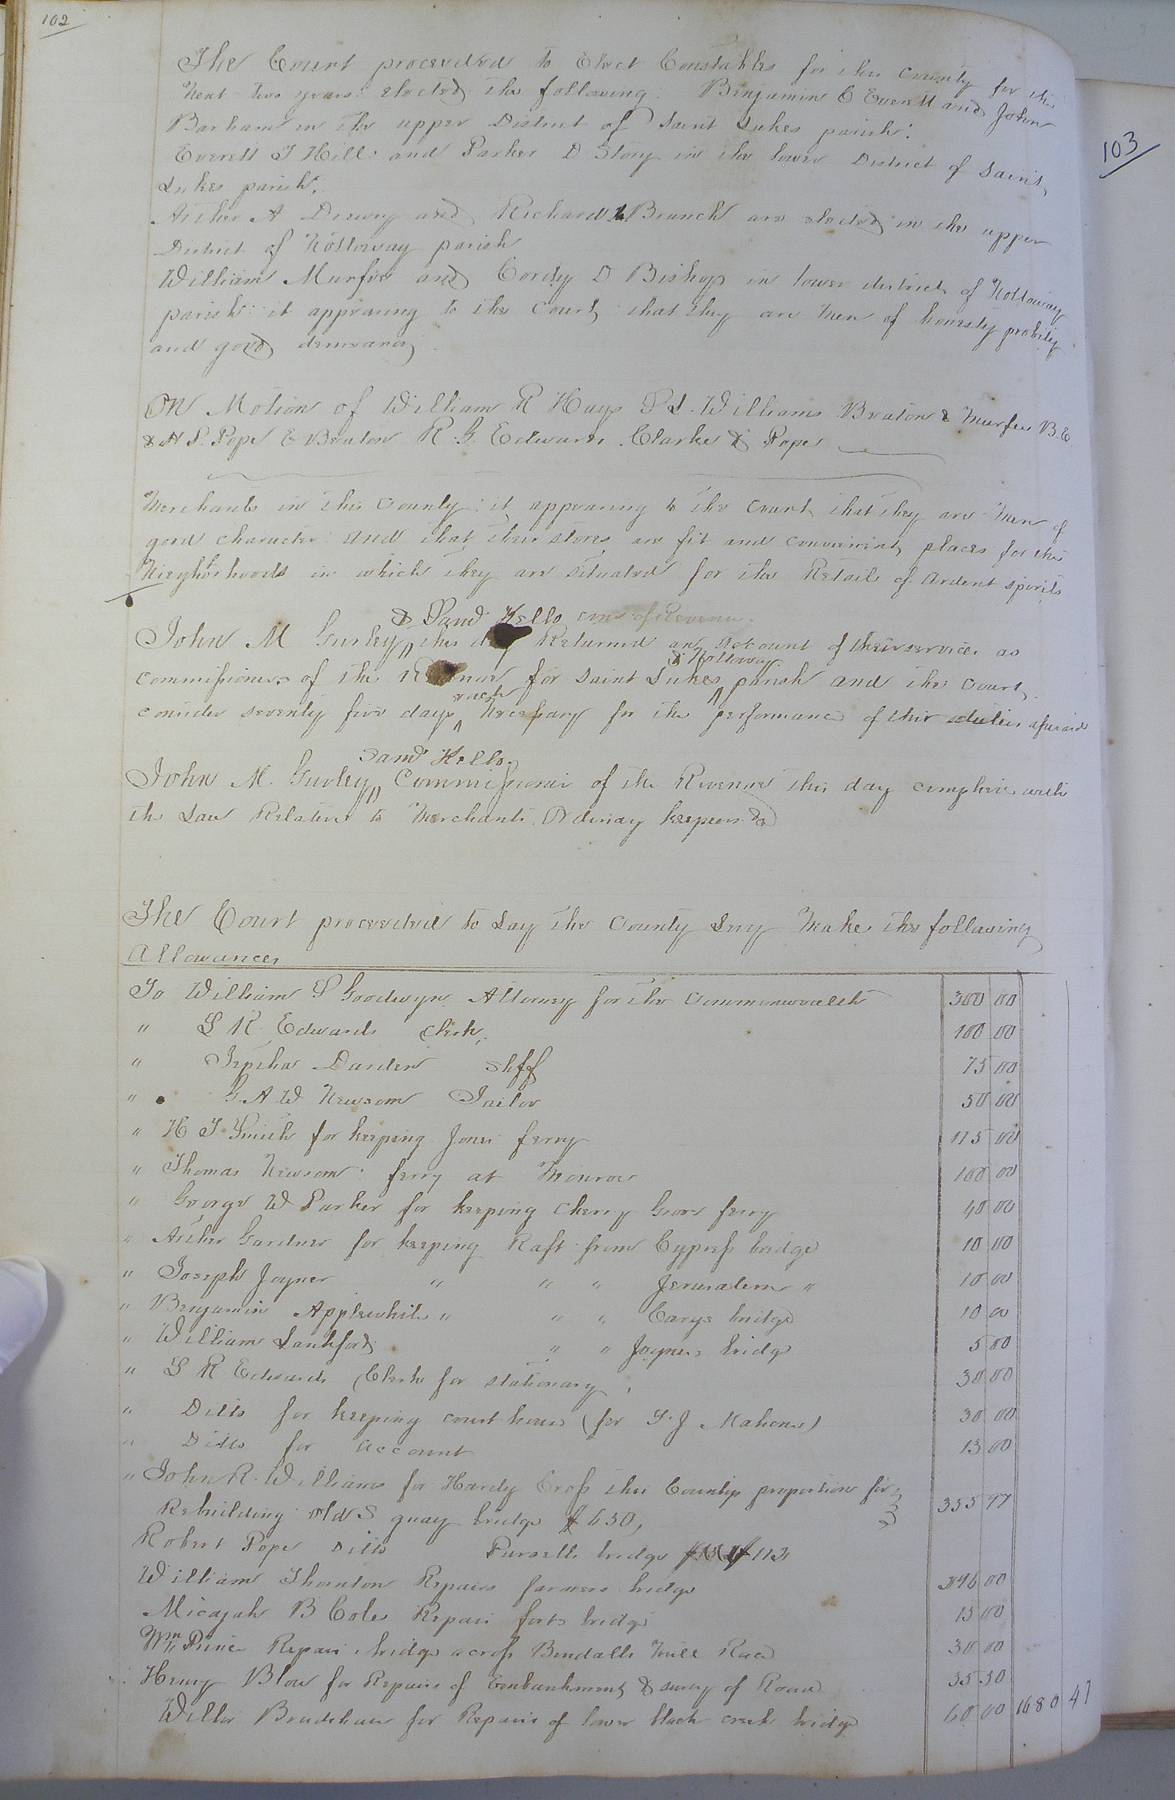 102
103
The Court proceeded to Elect Constables for this County for the
Next two years: elected the following: Benjamin C Everett and John
Barham in the upper District of Saint Lukes parish:
Everett T Hill and Parker D Story in the lower District of Saint
Lukes parish.
Archer A Drewry and Richard Branch are elected in the upper
District of Nottoway parish
William Murfee and Cordy D Bishop in lower district of Nottoway
parish: it appearing to the Court that they are men of honesty probity
and good demeanor
On Motion of William R Hays P L. Williams Braton & Murfee B.E.
& H P. Pope E Braton R G. Edwards Clarke & Pope
Merchants in this County: it appearing to the Court that they are men of
good character and that their stores are fit and convenient places for the
Nieghborhoods in which they are situated for the Retail of Ardent spirits
& Saml Kello com of Revenue
John M Gurley this day Returned an Account of their services as
& Nottoway
commissioners of the Revenue for Saint Lukes parish and the Court
each
consider seventy five days necessary for the performance of their duties aforesaid
Saml Kello.
John M. Gurley Commissioner of the Revenue this day complied with
the Law Relative to Merchants Ordinary keepers &c
The Court proceeded to Lay the County Levy Make the following
Allowances
To William S Goodwyn Attorney for the Commonwealth 300 00
" L R Edwards Clerk 100 00
" Jeptha Darden Shff 75 00
" G. A W Newsom Jailor 50 00
" H T Smith for keeping Jones ferry 175 00
" Thomas Newsom ferry at Monroe 100 00
" George W Parker for keeping Cherry Grove ferry 40 00
" Archer Gardner for keeping Raft from Cypress bridge 10 00
" Joseph Joyner " " " Jerusalem " 10 00
" Benjamin Applewhite " " " Carys bridge 10 00
" William Lankford " " Joyners bridge 5 00
" L R Edwards Clerk for stationary 30 00
" Ditto for keeping court house (for T. J Mahone) 30 00
" Ditto for account 13 00
" John R. Williams for Hardy Cross this Countys proportion for
Rebuilding old S quay bridge $650, 335 97
Robert Pope Ditto Pursells bridge $113
William Thornton Repairs farmers bridge 96 00
Micajah B Cole Repair forts bridge 15 00
Wm Prince Repair bridge across Bendalls Mill Race 30 00
Henry Blow for Repairs of Embankment & survey of Road 35 50
Willis Bradshaw for Repairs of lower black creek bridge 60 00 1680 47